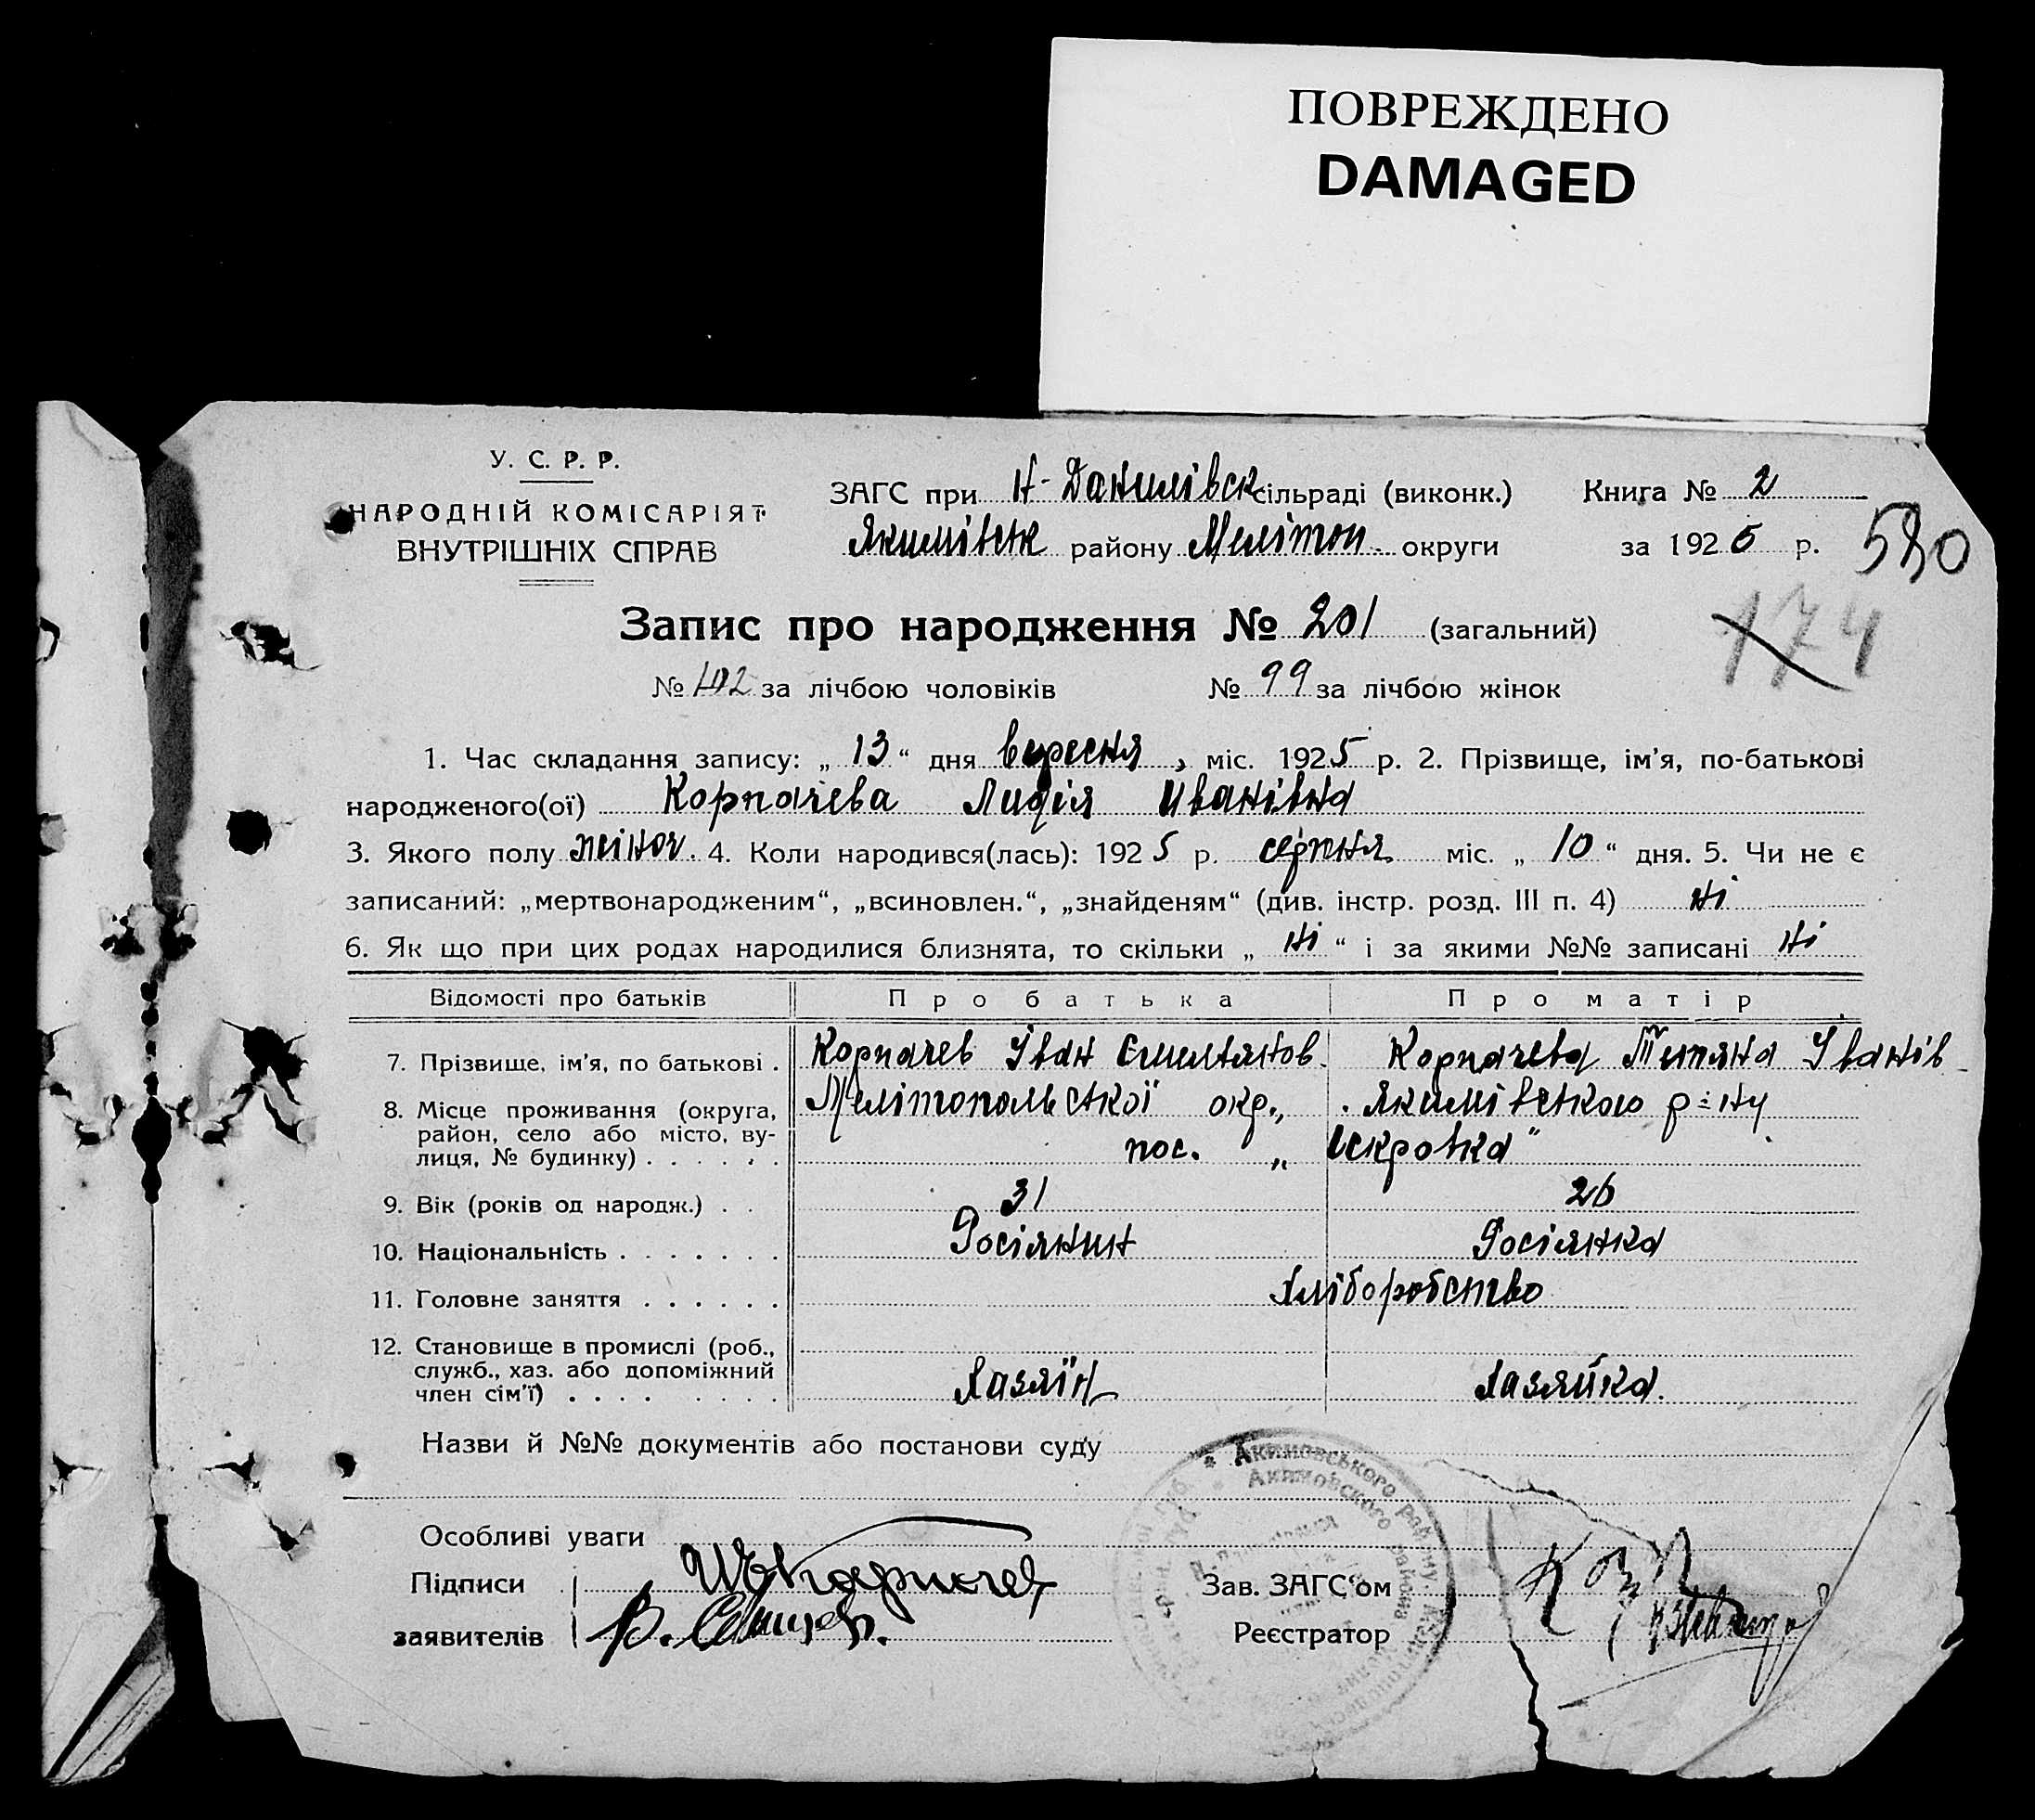 ПОВРЕЖДЕНО
DAMAGED
У. С. Р. Р.
НАРОДНІЙ КОМІСАРІЯТ
ВНУТРІШНІХ СПРАВ
ЗАГС при Н-Данилівск сільраді (виконк.) Книга № 2
Якимівськ району Мелітоп. округи за 1925 р.
580
174
Запис про народження № 201 (загальний)
№ 102 за лічбою чоловіків № 99 за лічбою жінок
1. Час складання запису: „ 13 “ дня вересня, міс. 1925 р. 2. Прізвище, ім'я, по-батькові
народженого(ої) Корпачева Лидія Иванівна
3. Якого полу жіноч. 4. Коли народився(лась): 1925 р. серпня міс. „ 10 “ дня. 5. Чи не є
записаний: „мертвонародженим“, „всиновлен.“, „знайденям“ (див. інстр. розд. III п. 4) ні
6. Як що при цих родах народилися близнята, то скільки „ ні “ і за якими №№ записані ні
Відомості про батьків Про батька Про матір
7. Прізвище, ім'я, по батькові . Корпачев Іван Емильянов. Корпачева Тетяна Іванів
8. Місце проживання (округа, Мелітопольської окр., Якимівською р-ну
район, село або місто, ву-
лиця, № будинку) . . . . . . пос. „Искровка"
9. Вік (років од народж.) . . 31 26
10. Національність . . . . . . . Росіянин Росіянка
11. Головне заняття . . . . . . Хліборобство
12. Становище в промислі (роб.,
служб., хаз. або допоміжний
член сім'ї) . . . . . . . . Хазяїн Хазяйка.
Назви й №№ документів або постанови суду
* Акимовського району
Акимовского района
Особливі уваги
Підписи
Зав. ЗАГС'ом
заявителів
Реєстратор